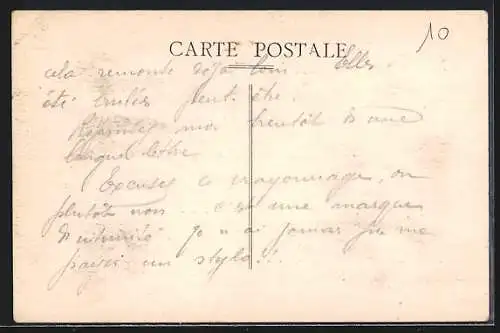 10
CARTE POSTALE
cela remonte déjà loin... Elles
été brulées peut être.
moi bientôt d'une
longue lettre
Excusez ce crayonnage, ou
plutôt non... c'est une marque
d'intimité je n'ai jamais pu me
un stylo!!